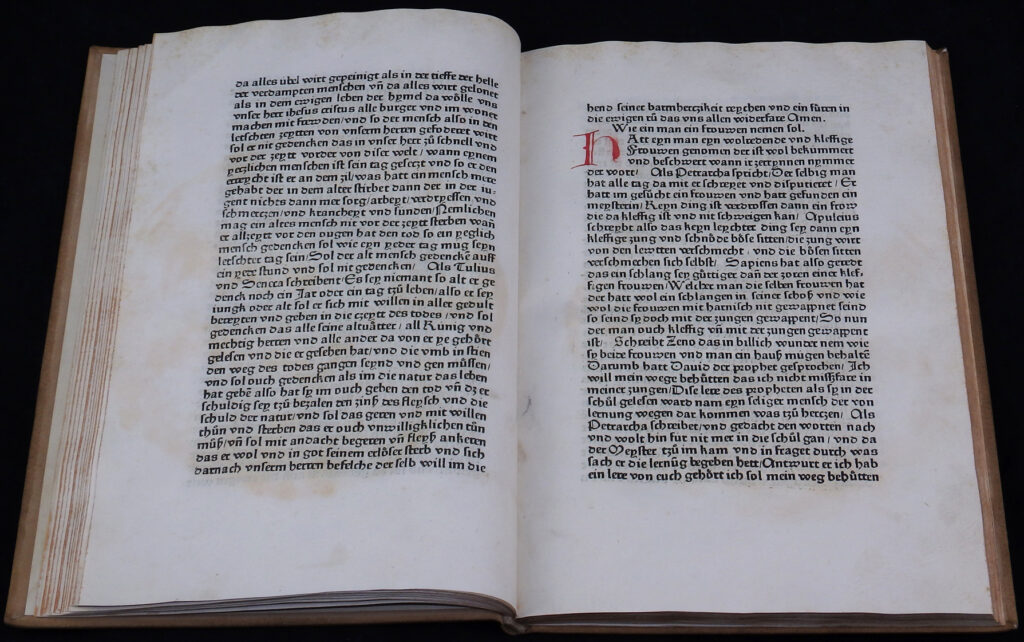 da alles übel wirt gepeinigt als in der tieffe der helle
der verdampten menschen vñ da alles wirt gelonet
als in dem ewigen leben der hymel da wölle vns
vnser herr ihesus cristus alle burger vnd im woner
machen mit frewden/vnd so der mensch also in den
letschten zeytten von vnserm herren gefodert wirt
sol er nit gedencken das in vnser herr zů schnell vnd
vor der zeytt vorder von diser welt/ wann eynem
yeczlichen menschen ist sein tag gesetzt vnd so er den
erreycht ist er an dem zil/was hatt ein mensch mere
gehabt der in dem alter stirbet dann der in der iu-
gent nichts dann mer sorg/arbeyt/verdryessen/vnd
schmerczen/vnd kranckeyt vnd sunden/Nemlichen
mag ein altes mensch nit vor der zeytt sterben wañ
er allzeytt vor den ougen hat den tod so ein yeglich
mensch gedencken sol wie eyn yeder tag mug seyn
letschter tag sein/Sol der alt mensch gedenckē auff
ein yede stund vnd sol nit gedencken/ Als Tulius
vnd Seneca schreibent/Es sey niemant so alt er ge
denck noch ein Jar oder ein tag zů leben/also er sey
iungk oder alt sol er sich mit willen in aller gedult
bereyten vnd geben in die czeytt des todes/vnd sol
gedencken das alle seine altuätter/ all Künig vnd
mechtig herren vnd alle ander da von er ye gehört
gelesen vnd die er gesehen hat/vnd die vmb in stien
den weg des todes gangen seynd vnd gen müssen/
vnd sol ouch gedencken als im die natur das leben
hat gebē also hat sy im ouch geben den tod vñ dz er
schuldig sey tzů bezalen den zinß des fleysch vnd die
schuld der natur/vnd sol das geren vnd mit willen
thůn vnd sterben das er ouch vnwilligklichen tůn
můß/vñ sol mit andacht begeren vñ fleyß ankeren
das er wol vnd in got seinem erlöser sterb vnd sich
darnach vnserm herren befelche der selb will im die
hend seiner barmherczikeit reychen vnd ein füren in
die ewigen rů das vns allen widerfare Amen.
Wie ein man ein frouwen nemen sol.
HAtt eyn man eyn wolredende vnd kleffige
Frouwen genomen der ist wol bekummert
vnd beschwert wann ir zerrynnen nymmer
der wort/ Als Petrarcha spricht/Der selbig man
hat alle tag da mit er schreyet vnd disputieret/ Er
hatt im gesücht ein frouwen vnd hatt gefunden ein
meystrin/Keyn ding ist verdrossen dann ein frow
die da kleffig ist vnd nit schweigen kan/ Apuleius
schreybt also das keyn leychter ding sey dann eyn
kleffige zung vnd schnöde böse sitten/die zung wirt
von den lewten verschmecht/ vnd die bösen sitten
verschmechen sich selbst/ Sapiens hat also geredt
das ein schlang sey gůttiger dañ der zoren einer klef
figen frouwen/Welicher man die selben frouwen hat
der hatt wol ein schlangen in seiner schoß vnd wie
wol die frouwen mit harnisch nit gewappnet sind
so seind sy doch mit der zungen gewappent/So nun
der man ouch kleffig vñ mit der zungen gewappent
ist/ Schreibt Zeno das in billich wunder nem wie
sy beide frouwen vnd man ein hauß mügen behaltē
Darumb hatt Dauid der prophet gesprochen/Ich
will mein wege behůtten das ich nicht mißfare in
meiner zungen/Dise lere des propheten als sy in der
schůl gelesen ward nam eyn seliger mensch der von
lernung wegen dar kommen was tzů hertzen/ Als
Petrarcha schreibet/vnd gedacht den worten nach
vnd wolt hin fur nit mer in die schůl gan/vnd da
der Meyster tzů im kam vnd in fraget durch was
sach er die lernüg begeben hett/Antwurt er ich hab
ein lere von euch gehört ich sol mein weg behůtten